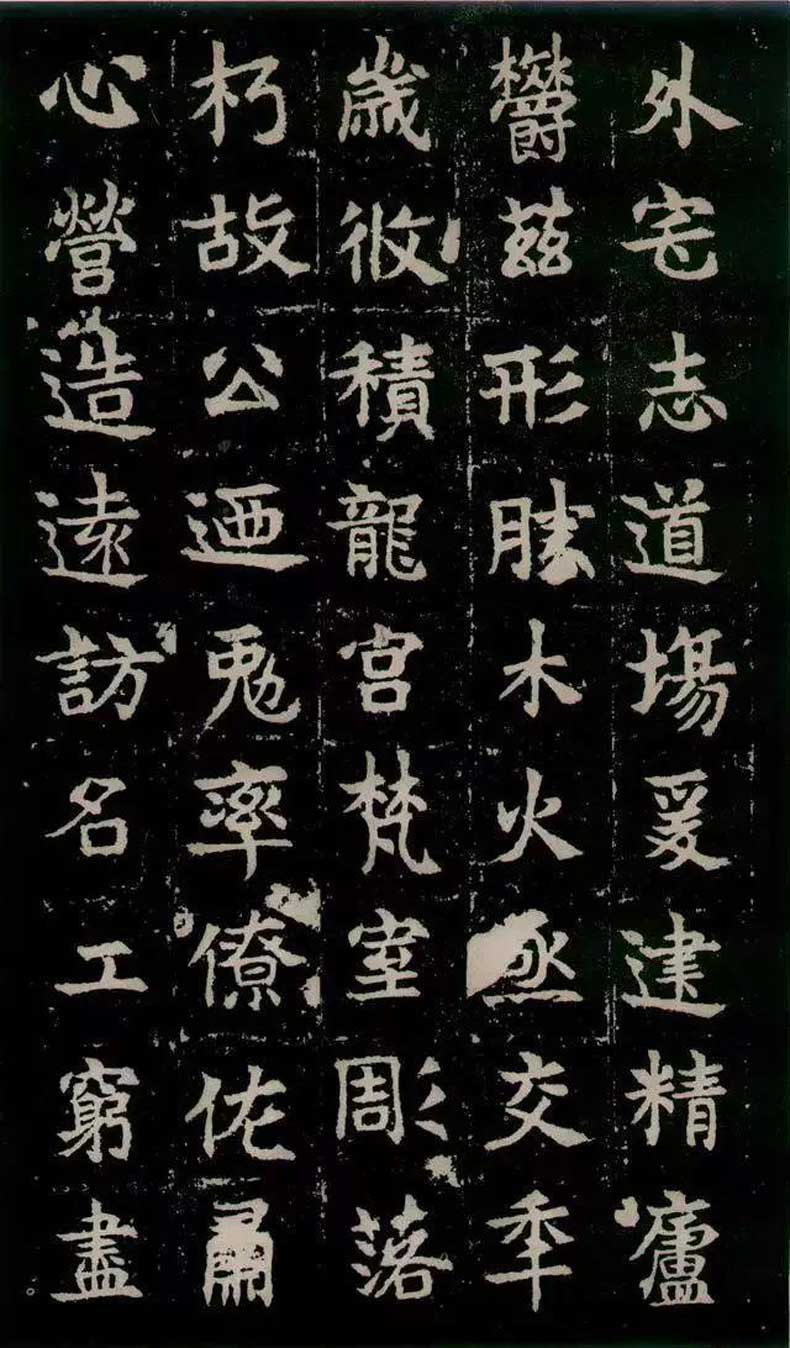 外宅志道塲爰建精廬
欝兹形勝木火烝交年
歲攸積龍宮梵室彫落
朽故公迺兎率僚佐肅
心營造遠訪名工窮盡